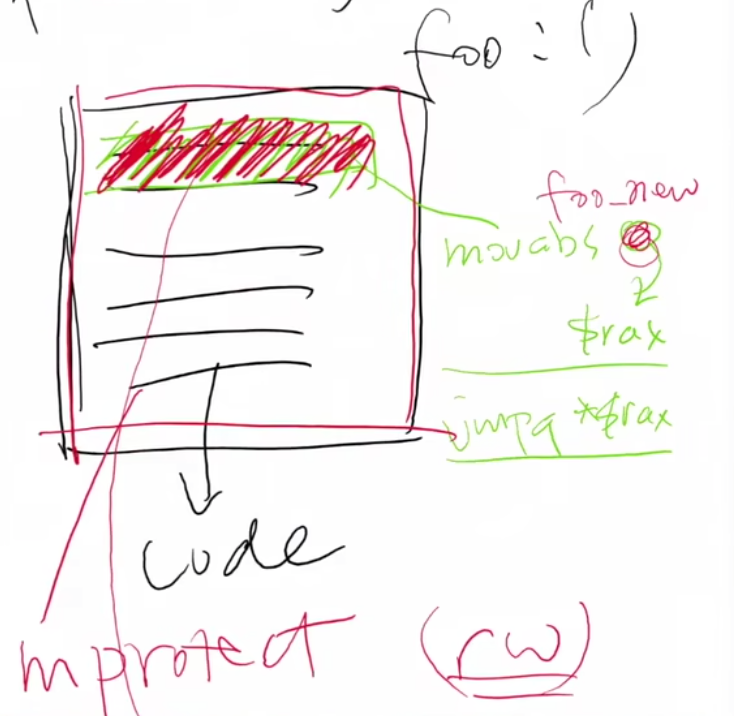 foo : ()
foo_new
movabs
$rax
jmpq *$rax
code
mprotect (rw)